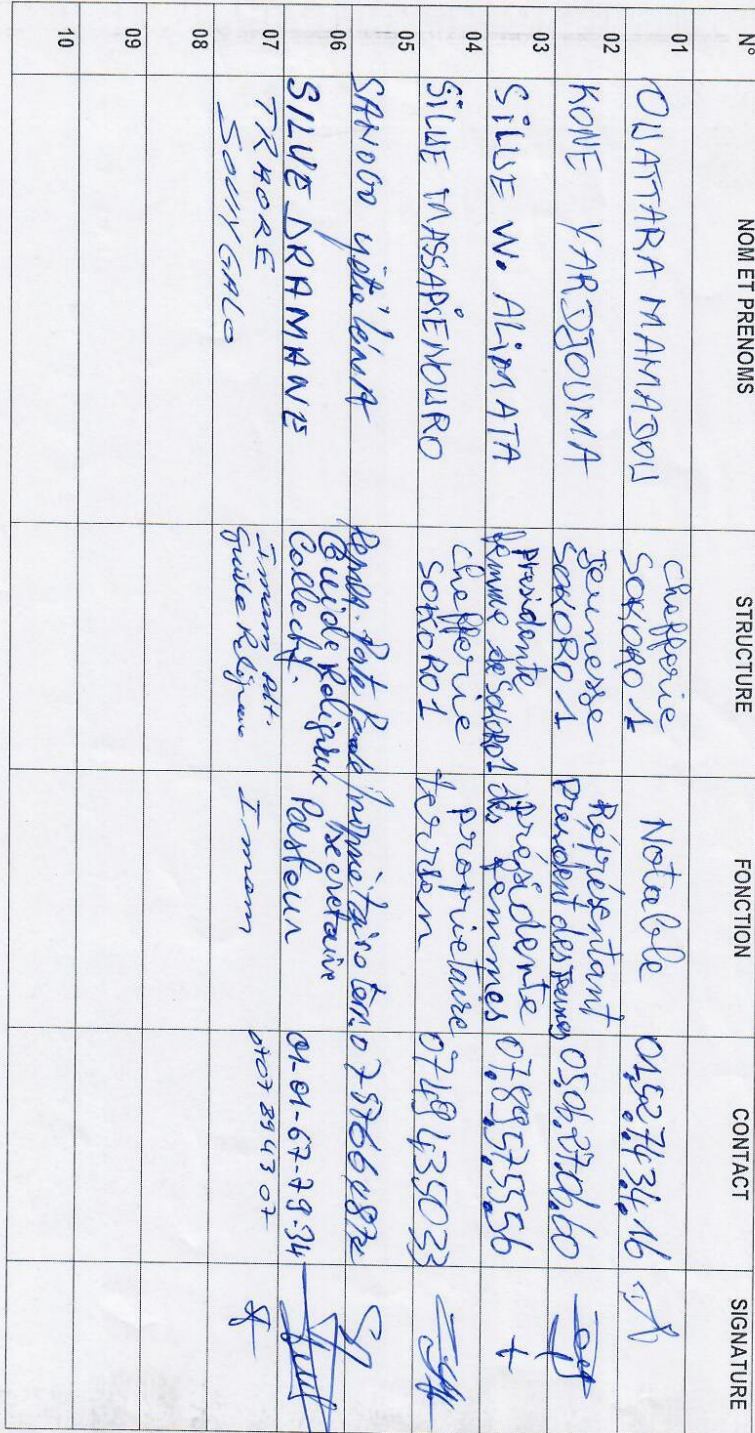 N° NOM ET PRENOMS STRUCTURE FONCTION CONTACT SIGNATURE
01 OUATTARA MAMADOU Chefferie SOKORO 1 Notable
02 KONE YARDJOUMA Jeunesse SOKORO 1 Représentant President des jeunes 05.01.27.01.60
03 SILUE W. ALIMATA Presidente femme de SOKORO1 présidente des femmes 07.89.57.55.56 +
04 SILUE MASSAPIENOURO chefferie SOKORO 1 proprietaire terrien 0749435033
05 SANOGO Porte Parole propriétaire
06 SILUE DRAMANE Guide Religieux Collectif. Secretaire Pasteur 01-01-67-79-34
07 TRAORE SOUNGALO Imam Guide Religieux Imam 0707894307
08
09
10